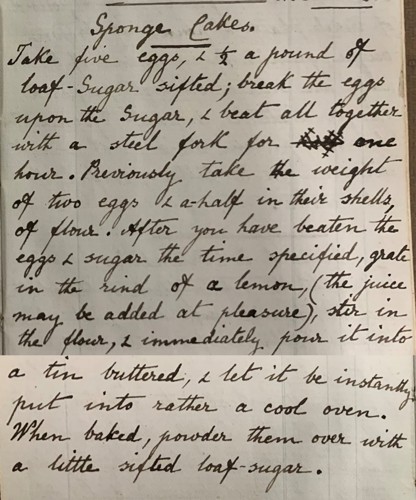 Sponge Cakes.
Take five eggs, & ½ a pound of
loaf-Sugar sifted; break the eggs
upon the Sugar, & beat all together
with a steel fork for one
hour. Previously take the weight
of two eggs & a-half in their shells,
of flour. After you have beaten the
eggs & sugar the time specified, grate
in the rind of a lemon, (the juice
may be added at pleasure), stir in
the flour, & immediately pour it into
a tin buttered, & let it be instantly
put into rather a cool oven.
When baked, powder them over with
a little sifted loaf-sugar.